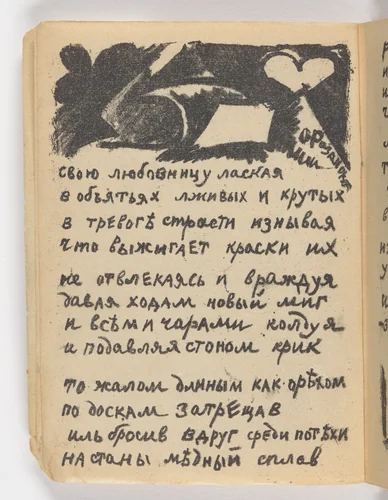 свою любовницу лаская
в объятьях лживых и крутых
в тревогѣ страсти изнывая
что выжигает краски их
не отвлекаясь и враждуя
давая ходам новый миг
и всѣми чарами колдуя
и подавляя стоном крик
то жалом длинным как орѣхом
по доскам затрещав
иль бросив вдруг среди потѣхи
на станы мѣдный сплав